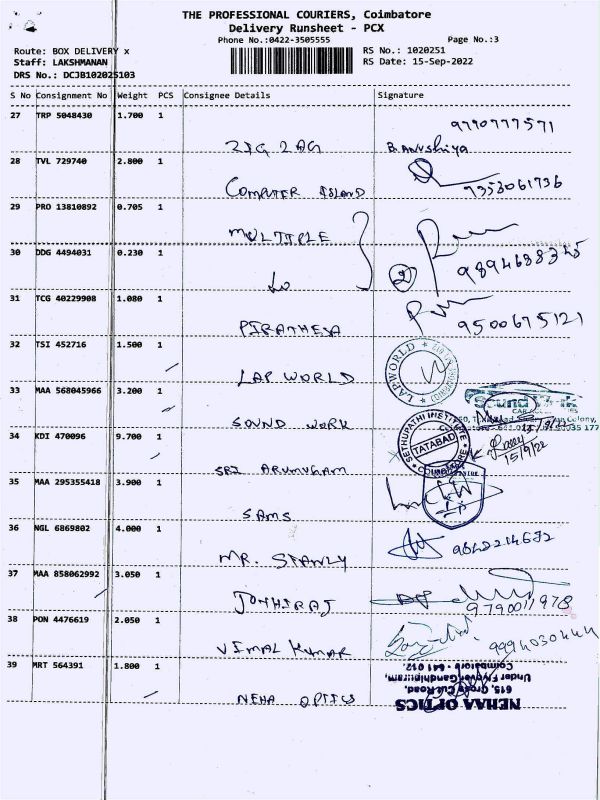 THE PROFESSIONAL COURIERS, Coimbatore
Delivery Runsheet - PCX
Phone No.:0422-3505555
Page No.:3
Route: BOX DELIVERY x
RS No.: 1020251
Staff: LAKSHMANAN
RS Date: 15-Sep-2022
DRS No.: DCJB102025103
S No Consignment No Weight PCS Consignee Details Signature
27 TRP 5048430 1.700 1
9790777571
ZIG ZAG B. Anushiya
28 TVL 729740 2.800 1
COMPUTER ISLAND 9353061736
29 PRO 13810892 0.705 1
MULTIPLE
30 DDG 4494031 0.230 1
Lo 2 9894688345
31 TCG 40229908 1.080 1
PIRATHEYA 9500675121
32 TSI 452716 1.500 1
LAP WORLD LAPWORLD
33 MAA 568045966 3.200 1
SOUND WORK Sound Work
34 KDI 470096 9.700 1
SETHUPATHI INSTITUTE TATABAD
SRI ARUMUGAM 15/9/22
35 MAA 295355418 3.900 1
SAMS
36 NGL 6869802 4.000 1
MR. STANLY 9842214672
37 MAA 858062992 3.050 1
JOTHIRAJ 9790011978
38 PON 4476619 2.050 1
VIMAL KUMAR 9994030444
39 MRT 564391 1.800 1
NEHA OPTICS
NEHAA OPTICS
615, Cross Cut Road,
Under Flyover, Gandhipuram,
Coimbatore - 641 012.